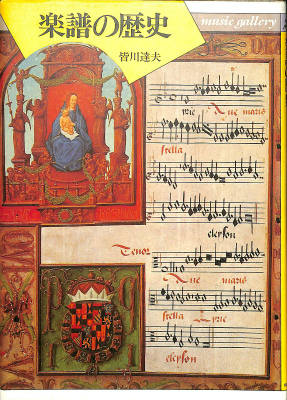 楽譜の歴史
music gallery
皆川達夫
Ave maris
stella
eleyson
Tenor
Ave maris
stella
eleyson